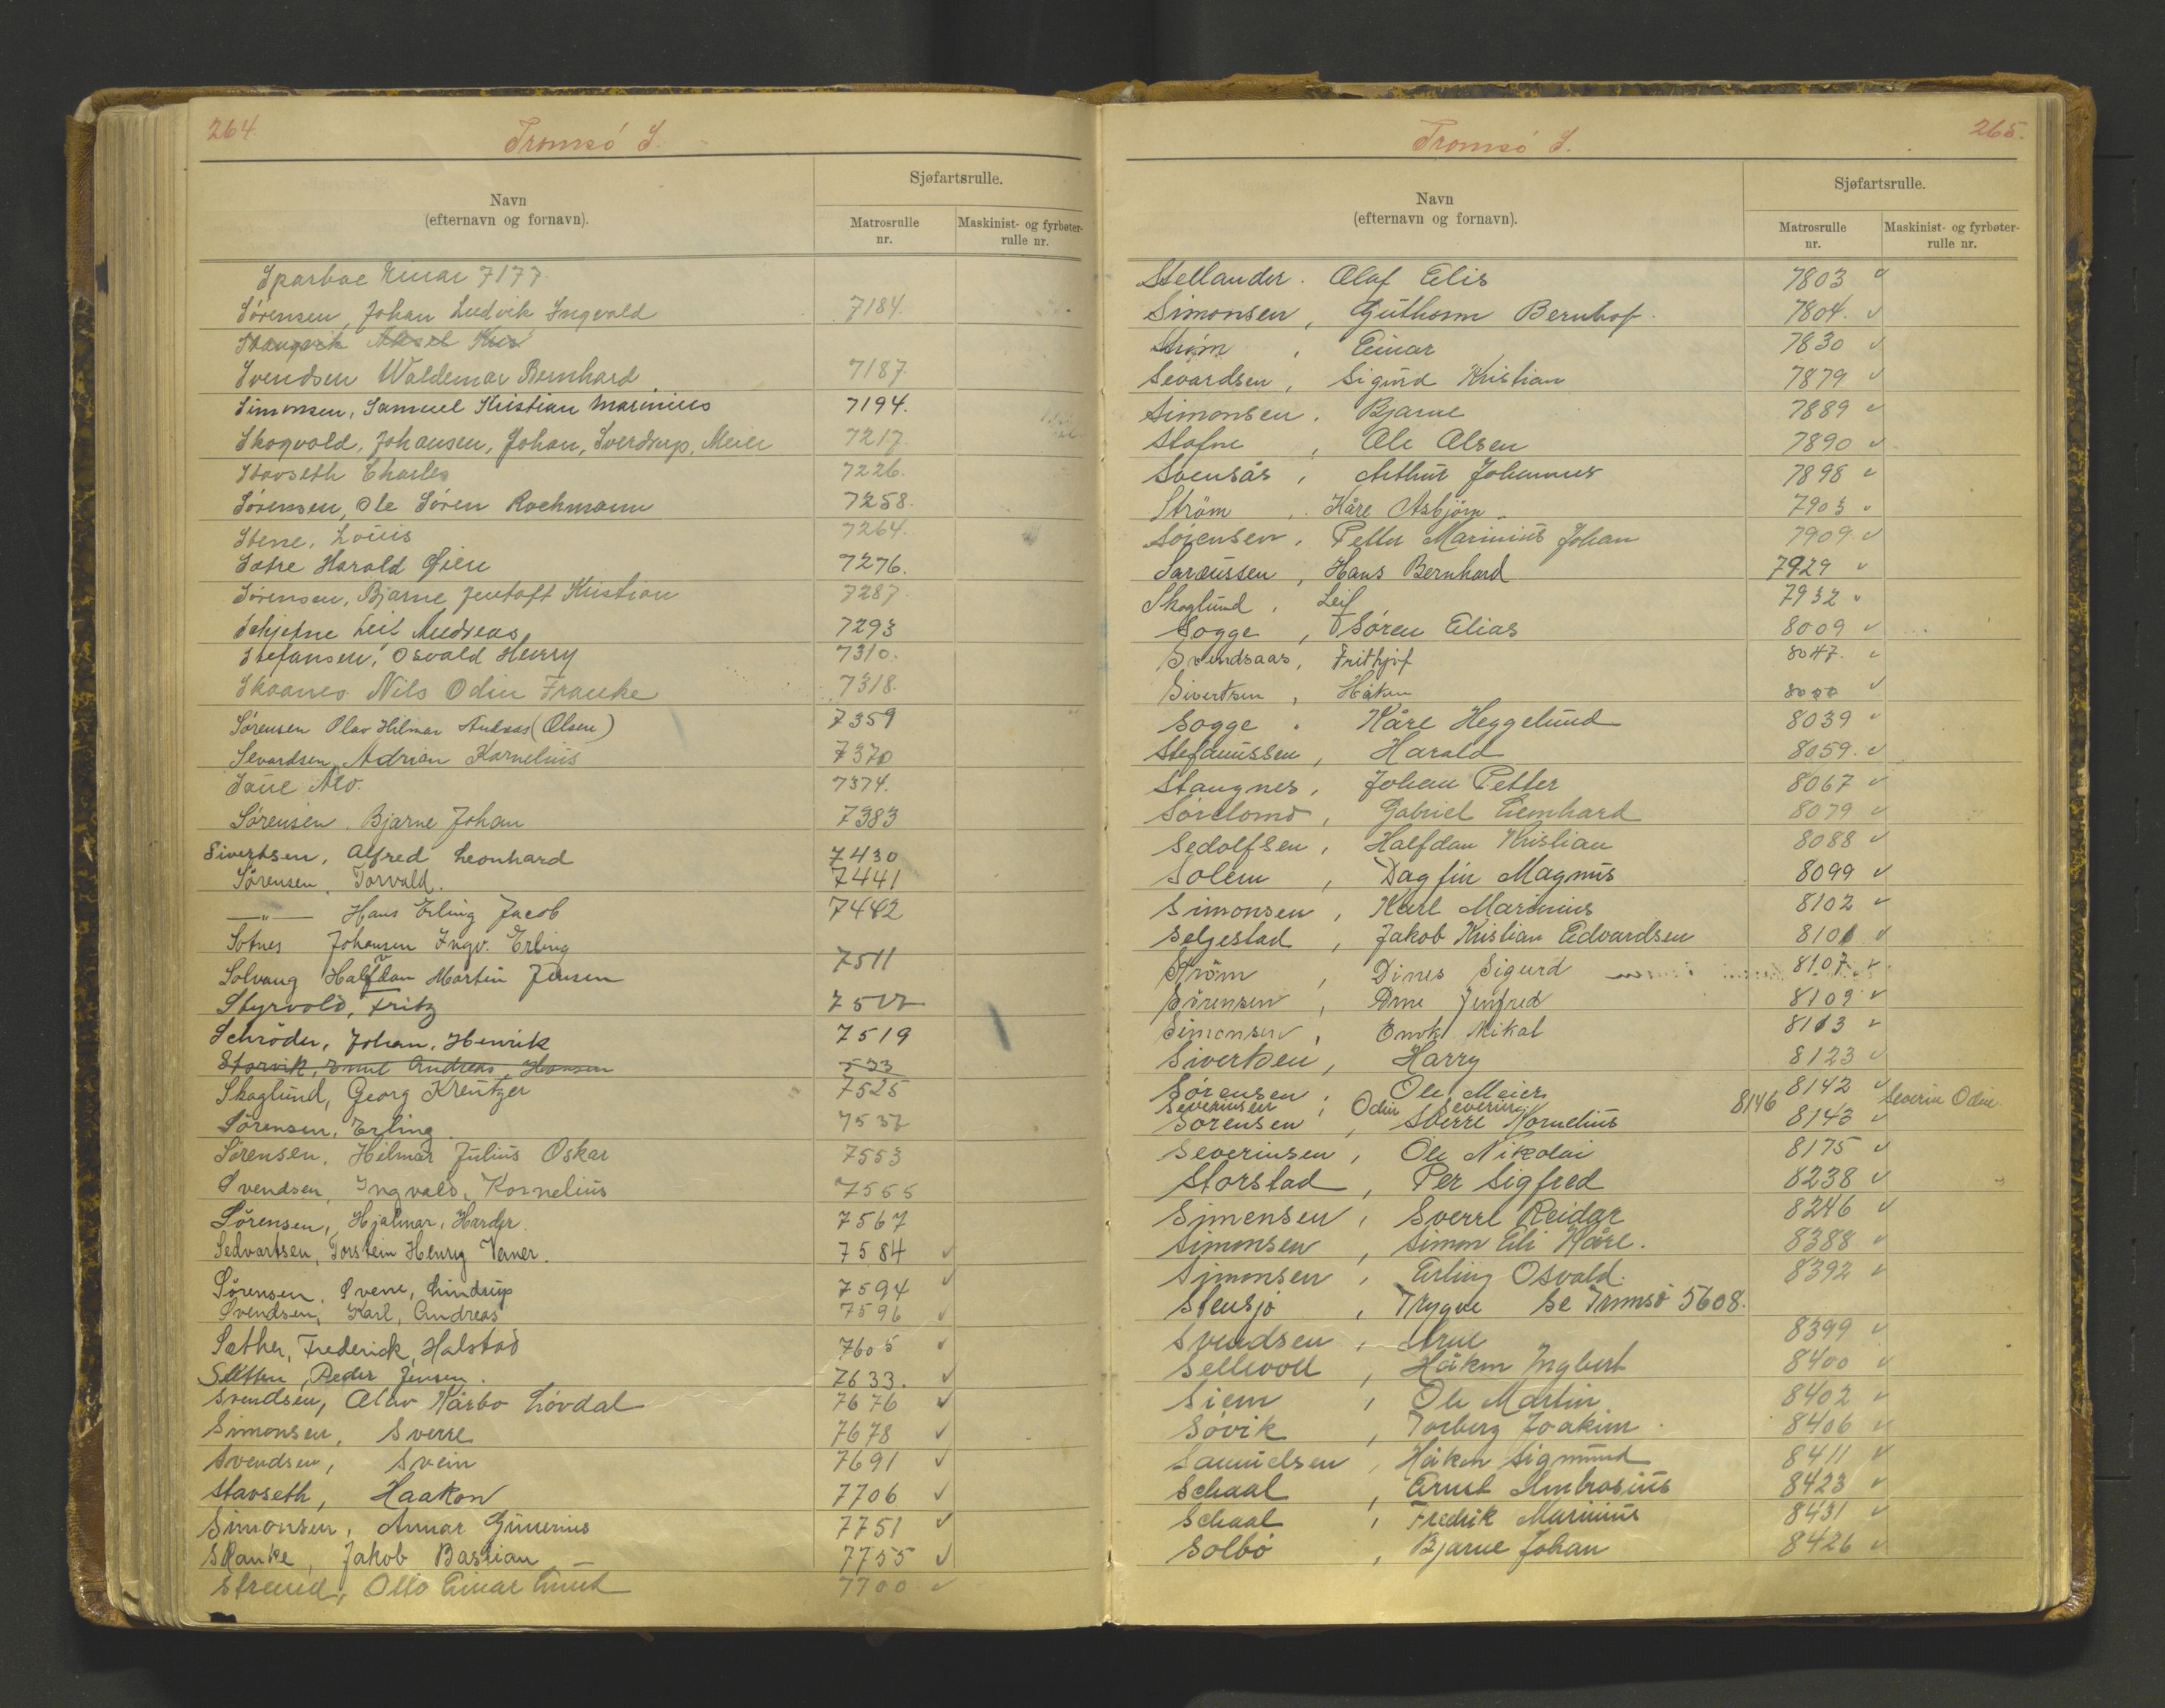 264
Tromsø S.
Navn
(efternavn og fornavn).
Sjøfartsrulle.
Matrosrulle
nr.
Maskinist- og fyrbøter-
rulle nr.
Sparboe Einar 7177.
Sørensen, Johan Ludvik Ingvald 7184.
Aksel
Svendsen Waldemar Bernhard 7187
Simonsen, Samuel Kristian Marinius 7194.
Skogvold, Johansen, Johan, Sverdrup, Meier 7217
Stavseth Charles 7226.
Sørensen, Ole Søren Rochmann 7258.
Stene, Louis 7264.
Sætre Harald Øien 7276.
Sørensen, Bjarne Jentoft Kristian 7287
Schjefne Leif Andreas 7293
Stefansen, Osvald Henry 7310.
Skaanes Nils Odin Franke 7318.
Sørensen Olav Hilmar Andreas (Olsen) 7359
Sevardsen, Adrian Kornelius 7370
Saue Alv. 7374.
Sørensen, Bjarne Johan 7383
Sivertsen, Alfred Leonhard 7430
Sørensen, Torvald. 7441
—"— Hans Erling Jacob 7442
Sotnes Johansen Ingv. Erling
Solvang Halfdan Martin Jensen 7511
Styrvold, Fritz
Schrøder, Johan, Henrik 7519
Storvik, Emil Andreas Hansen 533
Skoglund, Georg Kreutzer 7525
Sørensen, Erling 7537
Sørensen, Hilmar Julius Oskar 7553
Svendsen, Ingvald, Kornelius 7555
Sörensen, Hjalmar, Harder. 7567
Sedvartsen, Torstein Henry Verner. 7584 ✓
Sörensen, Svene, Lindrup 7594 ✓
Svendsen, Karl, Andreas 7596 ✓
Sæther, Frederick, Halstad 7605 ✓
Sletten, Peder Jensen. 7633. ✓
Svendsen, Olav Kårbø Løvdal 7676 ✓
Simonsen, Sverre 7678 ✓
Svendsen, Svein 7691 ✓
Stavseth, Haakon 7706 ✓
Simonsen, Annar Gunerius 7751 ✓
Skanke, Jakob Bastian 7755 ✓
Strand, Otto Einar 7700 ✓
265.
Tromsø S.
Navn
(efternavn og fornavn).
Sjøfartsrulle.
Matrosrulle
nr.
Maskinist- og fyrbøter-
rulle nr.
Stellander. Olaf Elis 7803 ✓
Simonsen, Guthorm Bernhof. 7804. ✓
Strøm, Einar 7830 ✓
Sevardsen, Sigurd Kristian 7879 ✓
Simonsen, Bjarne 7889 ✓
Stafne, Ole Olsen 7890 ✓
Svensås, Arthur Johannes 7898 ✓
Ström, Kåre Asbjørn 7903 ✓
Sørensen, Petter Marinius Johan 7909. ✓
Saræussen, Hans Bernhard 7929 ✓
Skoglund, Leif 7932 ✓
Sogge, Søren Elias 8009 ✓
Svendsaas, Frithjof 8047. ✓
Sivertsen, Håkon ✓
Sogge, Kåre Heggelund 8039 ✓
Stefanussen, Harald 8059. ✓
Stangnes, Johan Petter 8067 ✓
Gabriel 8079 ✓
Sedolfsen, Halfdan Kristian 8088 ✓
Solem, Dagfin Magnus 8099 ✓
Simonsen, Karl Marinius 8102 ✓
Seljestad, Jakob Kristian Edvardsen 8101 ✓
Ström, Dines Sigurd 8107. ✓
Sörensen, Arne Jenfred 8109 ✓
Simonsen, Enok Mikal 8113 ✓
Sivertsen, Harry 8123 ✓
Sørensen, Ole Meier 8142 ✓
Severinsen, Odin Severin 8146 Severin Odin.
Sørensen, Sverre Kornelius 8143 ✓
Severinsen, Ole Nikolai 8175 ✓
Storstad, Per Sigfred 8238 ✓
Simensen, Sverre Reidar 8246 ✓
Simonsen, Simon Eli Kåre. 8388 ✓
Simonsen, Erling Osvald. 8392 ✓
Stensjø, Trygve Se Tromsø 5608.
Svendsen, Arne 8399 ✓
Sellevoll, Håkon Ingbert 8400 ✓
Siem, Ole Martin 8402 ✓
Søvik, Torberg Joakim 8406 ✓
Samuelsen, Håkon Sigmund 8411 ✓
Schaal, Ernst Ambrosius 8423 ✓
Schaal, Fredrik Marinius 8431 ✓
Solbø, Bjarne Johan 8426 ✓